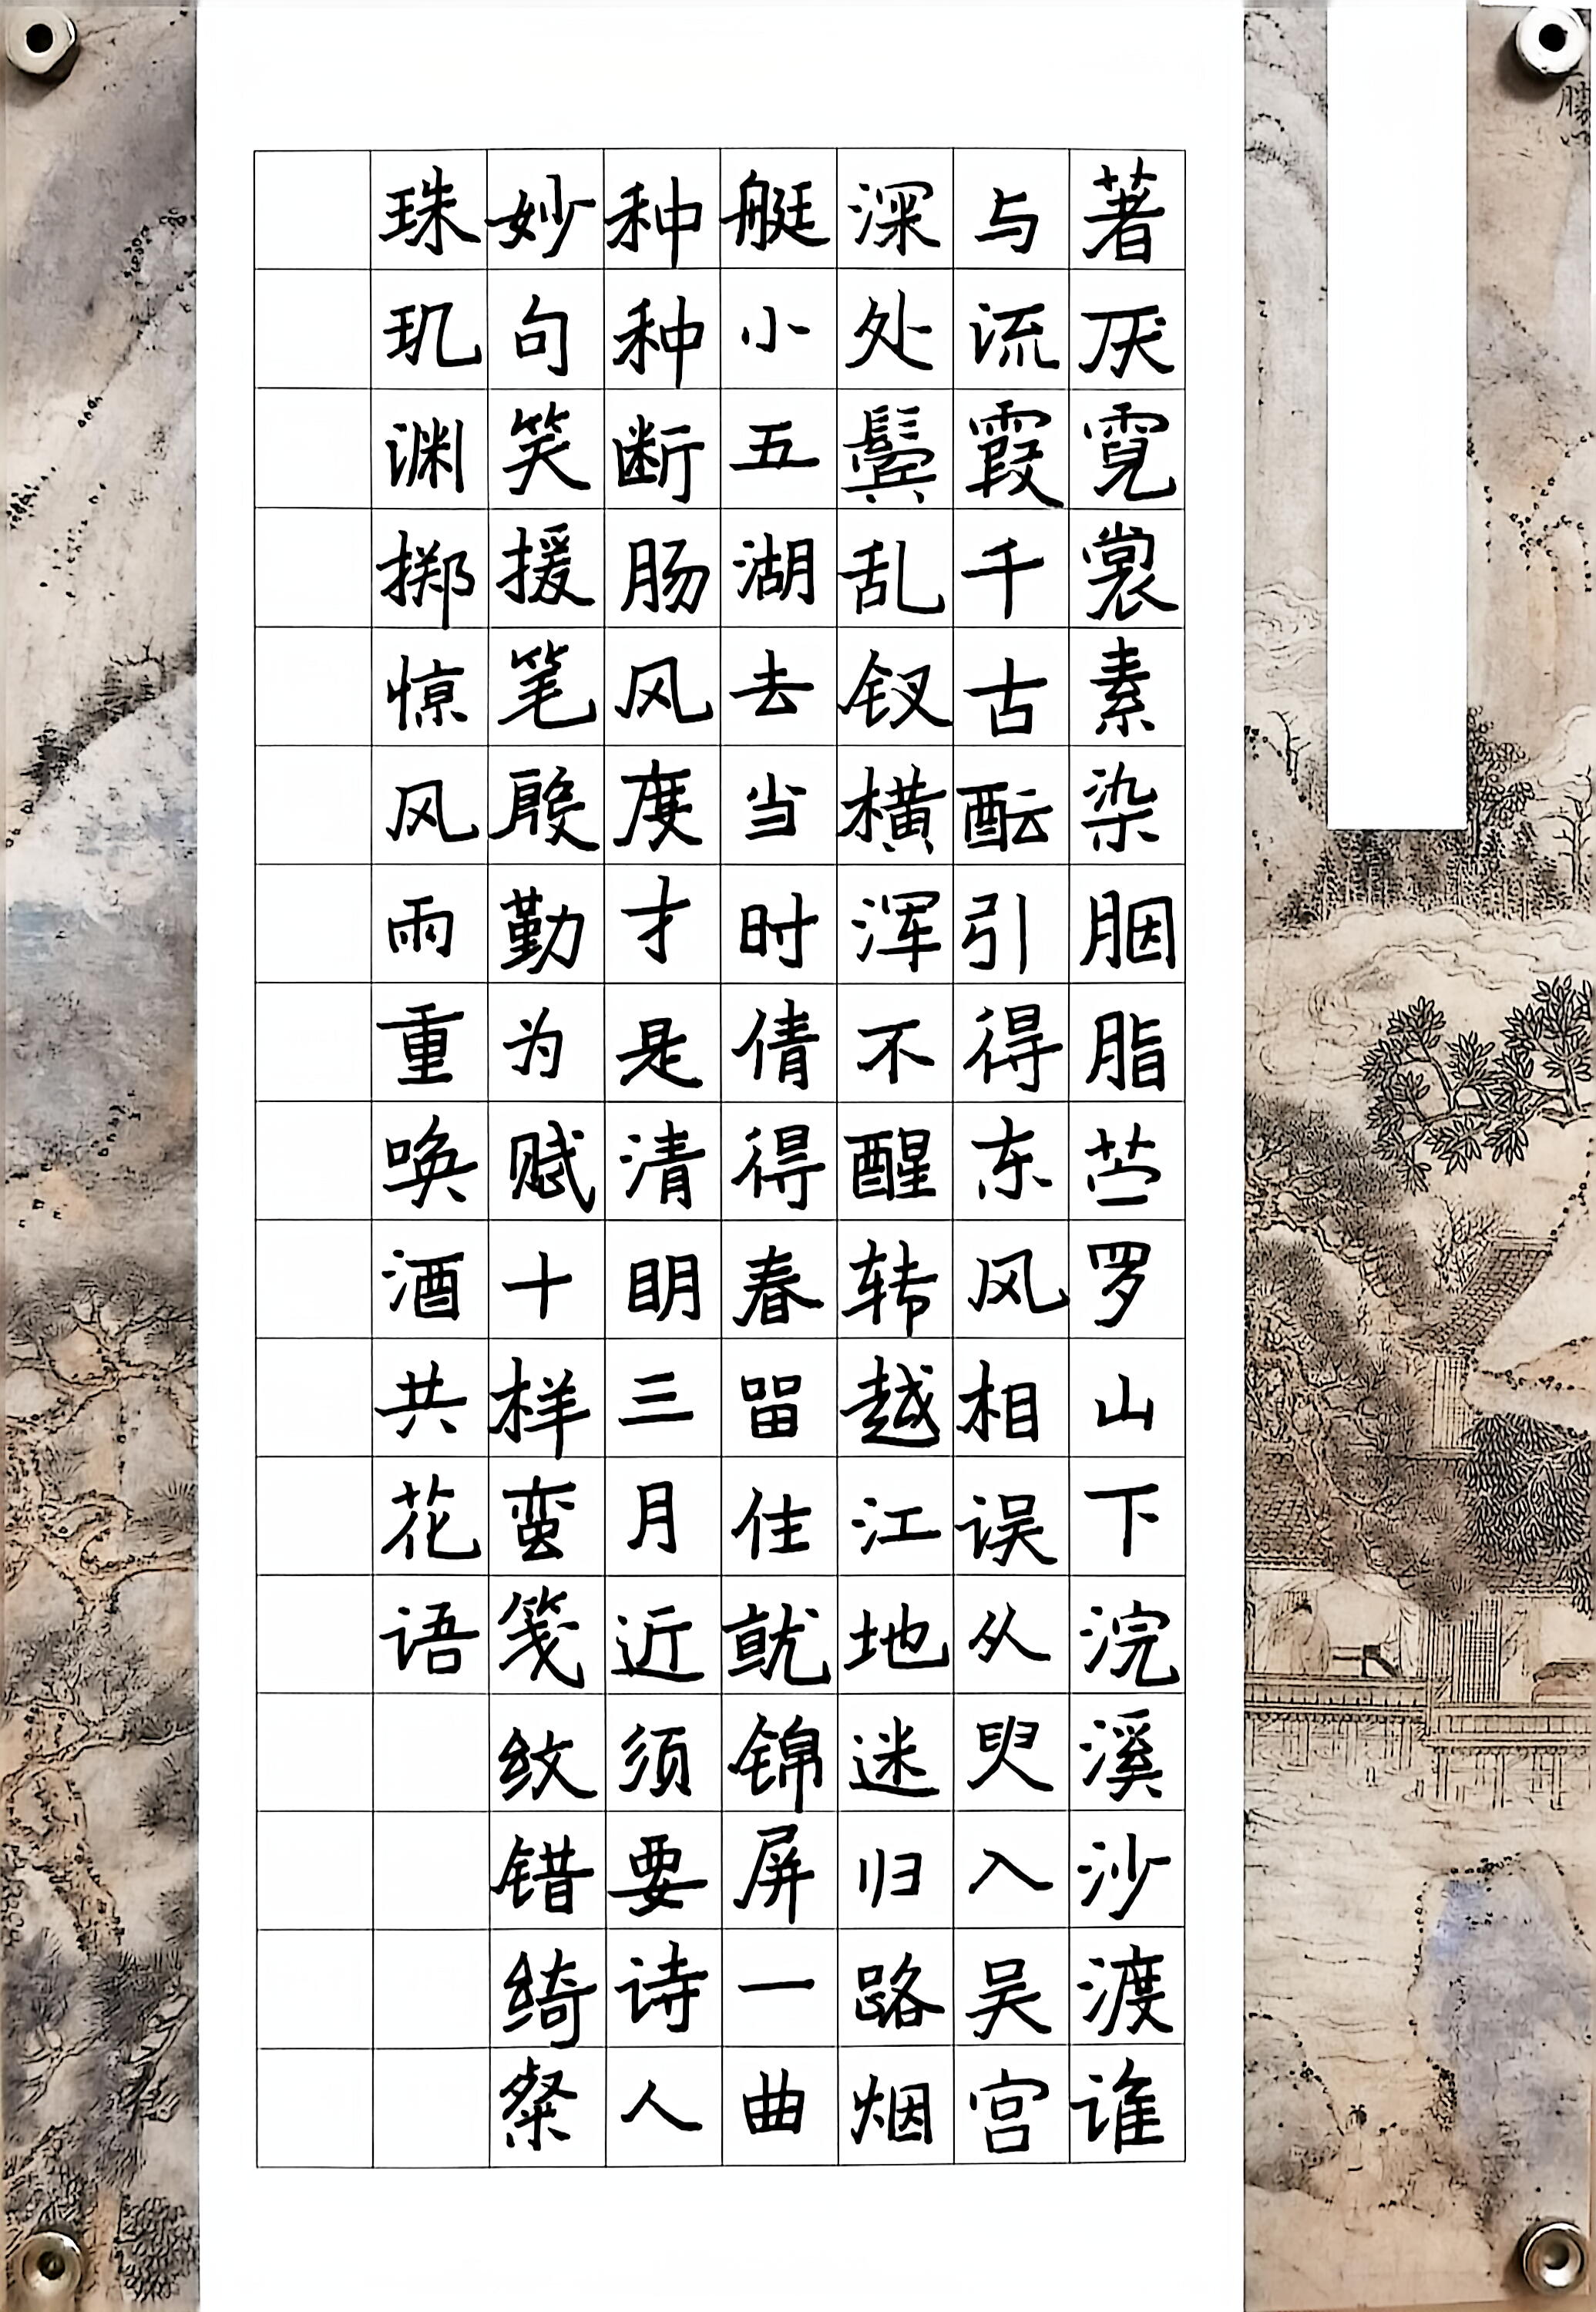 著厌霓裳素染胭脂苎罗山下浣溪沙渡谁
与流霞千古酝引得东风相误从臾入吴宫
深处鬓乱钗横浑不醒转越江地迷归路烟
艇小五湖去当时倩得春留住就锦屏一曲
种种断肠风度才是清明三月近须要诗人
妙句笑援笔殷勤为赋十样蛮笺纹错绮粲
珠玑渊掷惊风雨重唤酒共花语